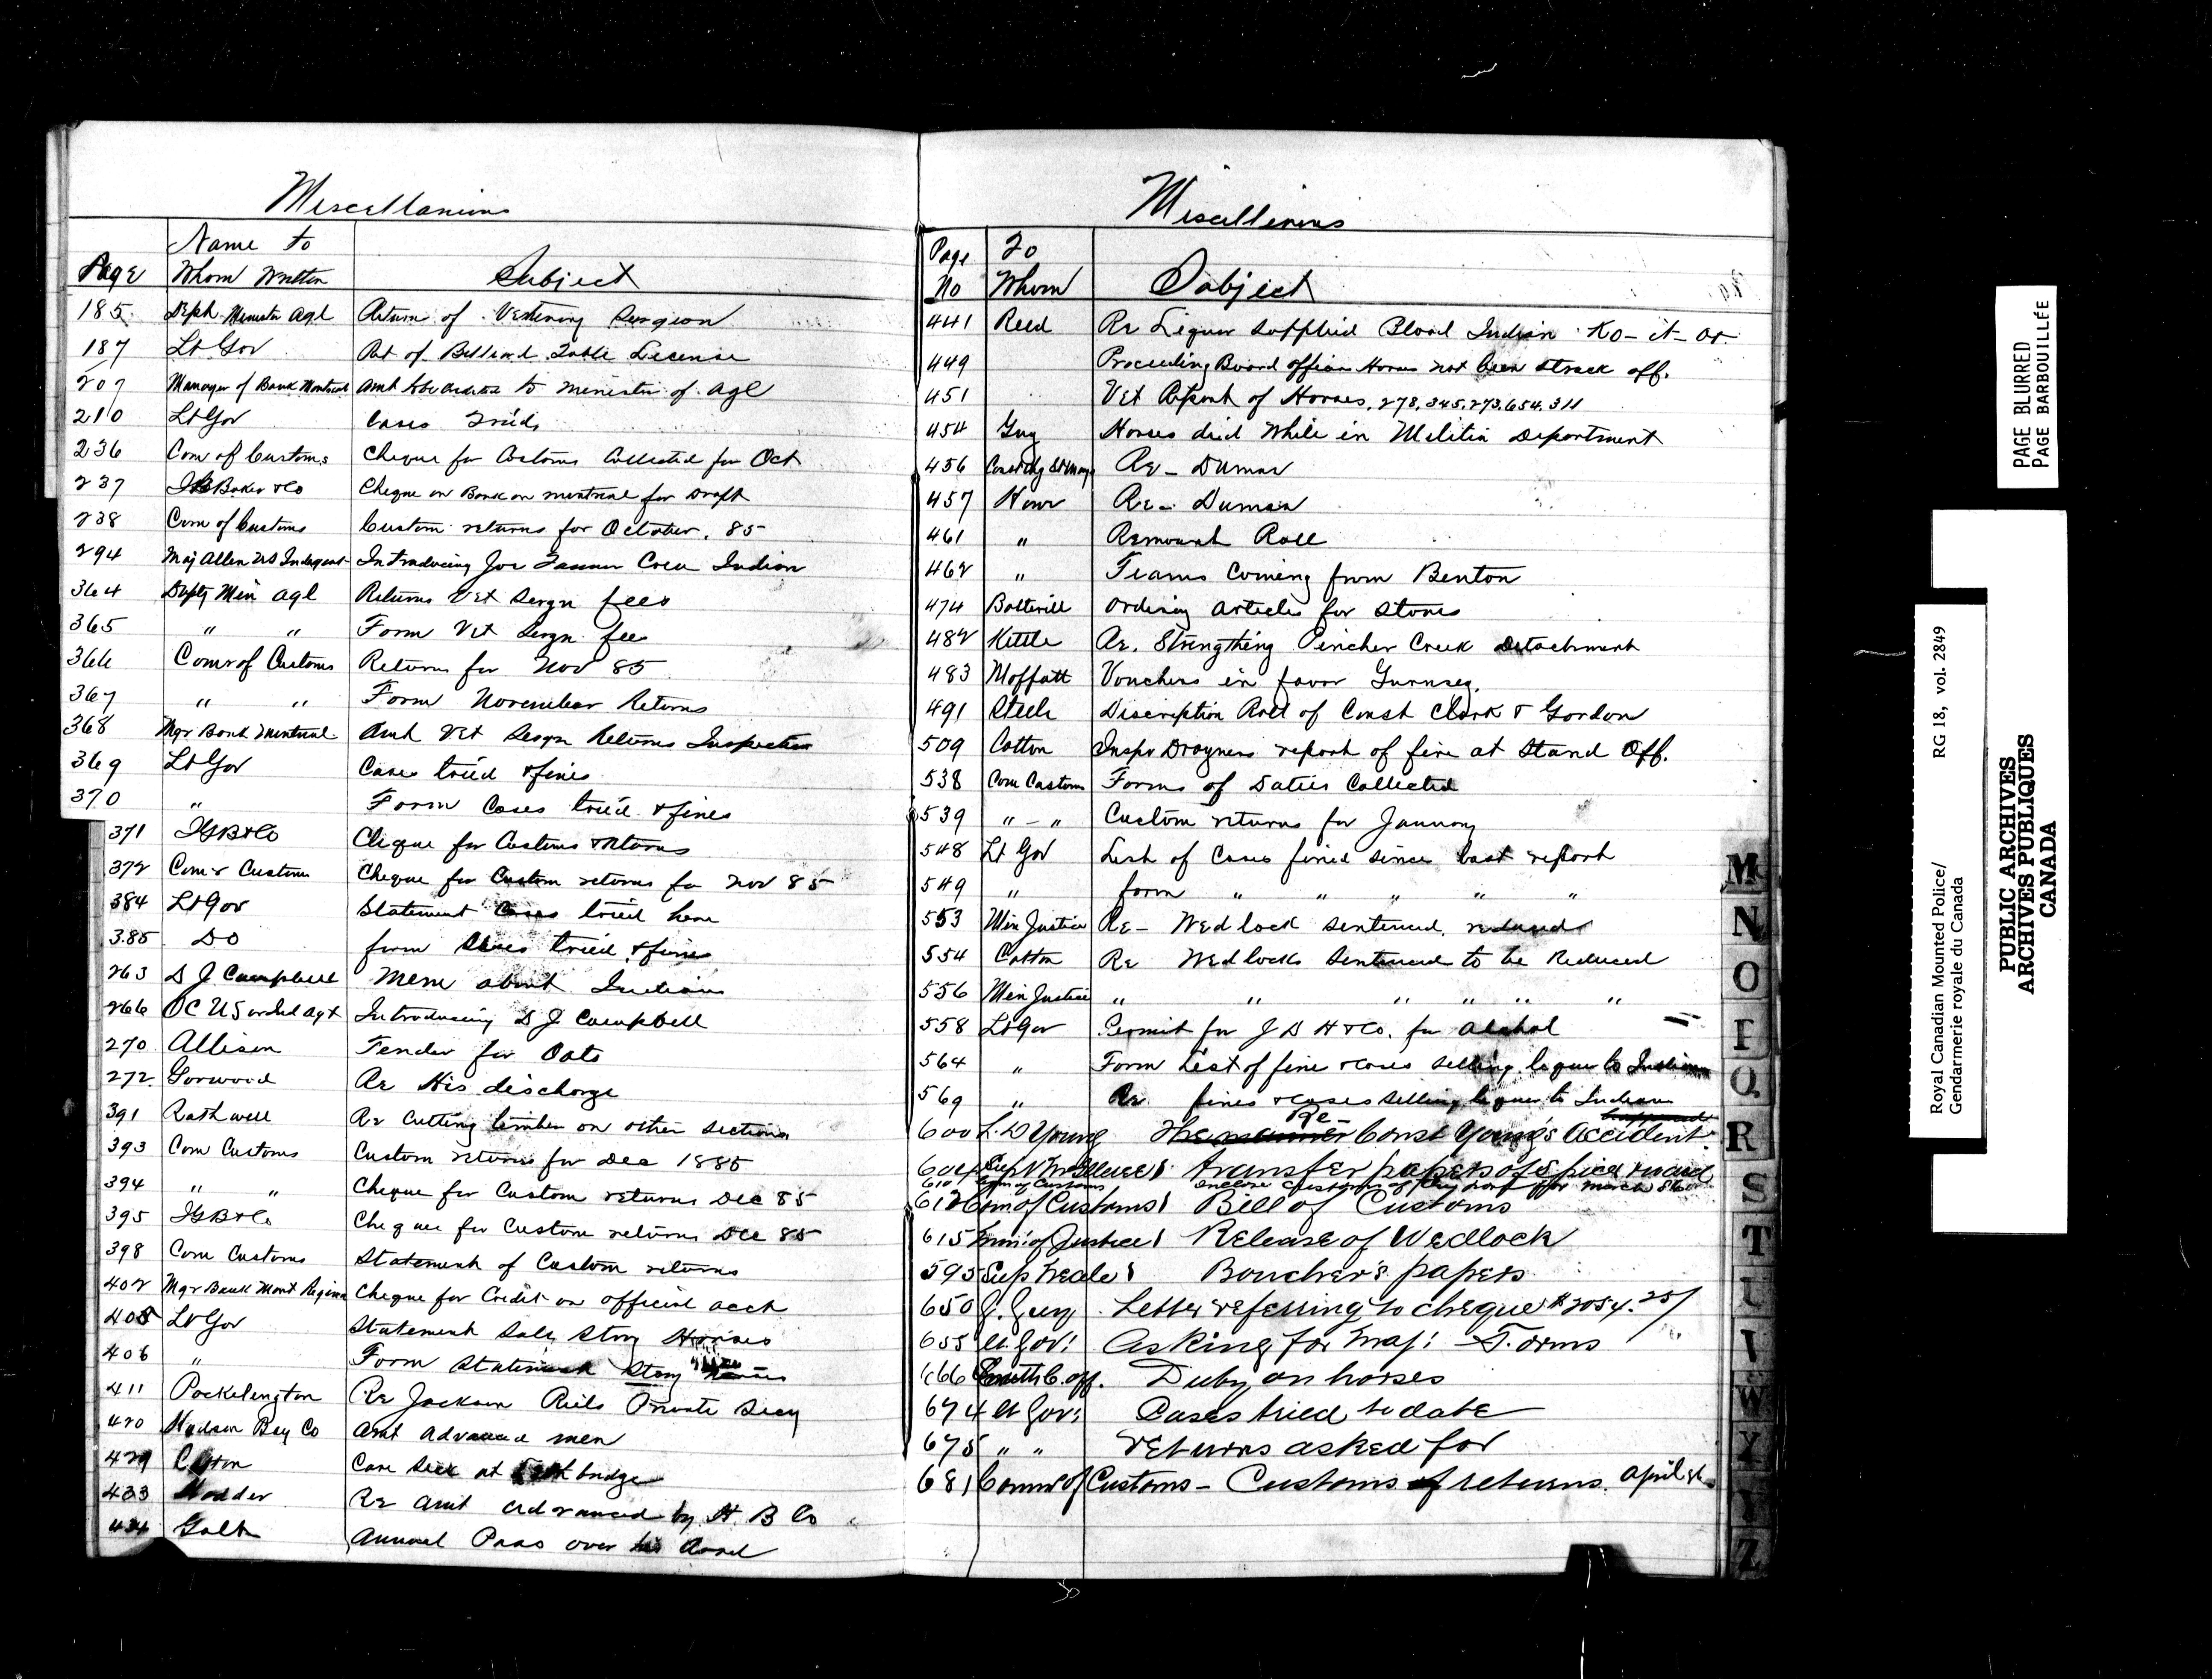 Miscellanious
Name to
Page Whom Written Subject
185 Deph Minister Agl Return of Vetering Surgeon
187 Lt Gov Ret of Billiard Table License
207 Manager of Bank Montreal Amt to be credited to Minister of Agl
210 Lt Gov Cases Tried
236 Com of Customs Cheque for Customs Collected for Oct
237 I G Baker & Co Cheque on Bank on Montreal for Draft
238 Com of Customs Custom returns for October, 85
294 Maj Allen US Indagent Introducing Joe Tanner Cree Indian
364 Depty Min Agl Returns Vet Surgn fees
365 " " Form Vet Surgn fees
366 Comr of Customs Returns for Nov 85
367 " " Form November Returns
368 Mgr Bank Montreal Amt Vet Surgn Returns Inspection
369 Lt Gov Cases tried & fines
370 " Form Cases tried & fines
371 IGB & Co Cheque for Customs returns
372 Comr Customs Cheque for Custom returns for Nov 85
384 Lt Gov Statement Cases tried here
385 Do form Cases tried & fines
263 D J Campbell Mem about Indians
266 OC US or Ind Agt Introducing D J Campbell
270 Allison Tender for Oats
272 Gorwood Re His discharge
391 Rathwell Re Cutting timber on other sections
393 Com Customs Custom returns for Dec 1885
394 " " Cheque for Custom returns Dec 85
395 IGB & Co Cheque for Custom returns Dec 85
398 Com Customs Statement of Custom returns
402 Mgr Bank Mont Regina Cheque for Credit on official acct
405 Lt Gov Statement Sale Stray Horses
406 " Form Statement Stray Horses
411 Pockelington Re Jackson Riels Private Secy
420 Hudson Bay Co Amt advanced men
429 Cotton Case Seik at Lethbridge
433 Hodder Re Amt advanced by H. B Co
434 Galt Annual Pass over his Road
Miscellinious
Page To
No Whom Subject
441 Reed Re Liquor Supplied Blood Indian Ko-it-or
449 Proceeding Board officers Horses not been struck off.
451 Vet Report of Horses, 278, 345, 273, 654, 311
454 Guy Horses died while in Militia Department
456 Re- Dumar
457 Howe Re- Dumas
461 " Remount Roll
462 " Teams Coming from Benton
474 Botterill Ordering articles for Stores
482 Kettle Re. Strengthing Pincher Creek Detachment
483 Moffatt Vouchers in favor Gurnsey.
491 Steele Discription Roll of Const Clark & Gordon
509 Cotton Inspr Drayners report of fire at Stand Off.
538 Com Customs Forms of Duties Collected
539 " - " Custom returns for January
548 Lt Gov List of Cases fined since last report
549 " form " " " " "
553 Min Justice Re- Wedlock Sentenced, reduced
554 Cotton Re Wedlocks Sentenced to be Reduced
556 Min Justice " " " " " "
558 Lt Gov Permit for J D H & Co. for Alcohol
564 " Form List of fine & cases selling liquor to Indians
569 " Re fines & cases selling liquor to Indians
Re
600 L. D Young The manner Const Young's Accident
604 Transfer papers of Spicer
610 Com of Customs
612 Com of Customs Bill of Customs
615 Min: of Justice Release of Wedlock
595 Sup Neale Boucher's papers
650 J. Guy Letter referring to cheque #2054.25/
655 Lt. Gov: Asking for Maj: Forms
666 Duty on horses
674 Lt Gov: Cases tried to date
675 " " returns asked for
681 Commr of Customs - Customs of returns. April 86
M
N
O
P
Q
R
S
T
U
V
W
Y
Z
PAGE BLURRED
PAGE BARBOUILLÉE
Royal Canadian Mounted Police/ RG 18, vol. 2849
Gendarmerie royale du Canada
PUBLIC ARCHIVES
ARCHIVES PUBLIQUES
CANADA